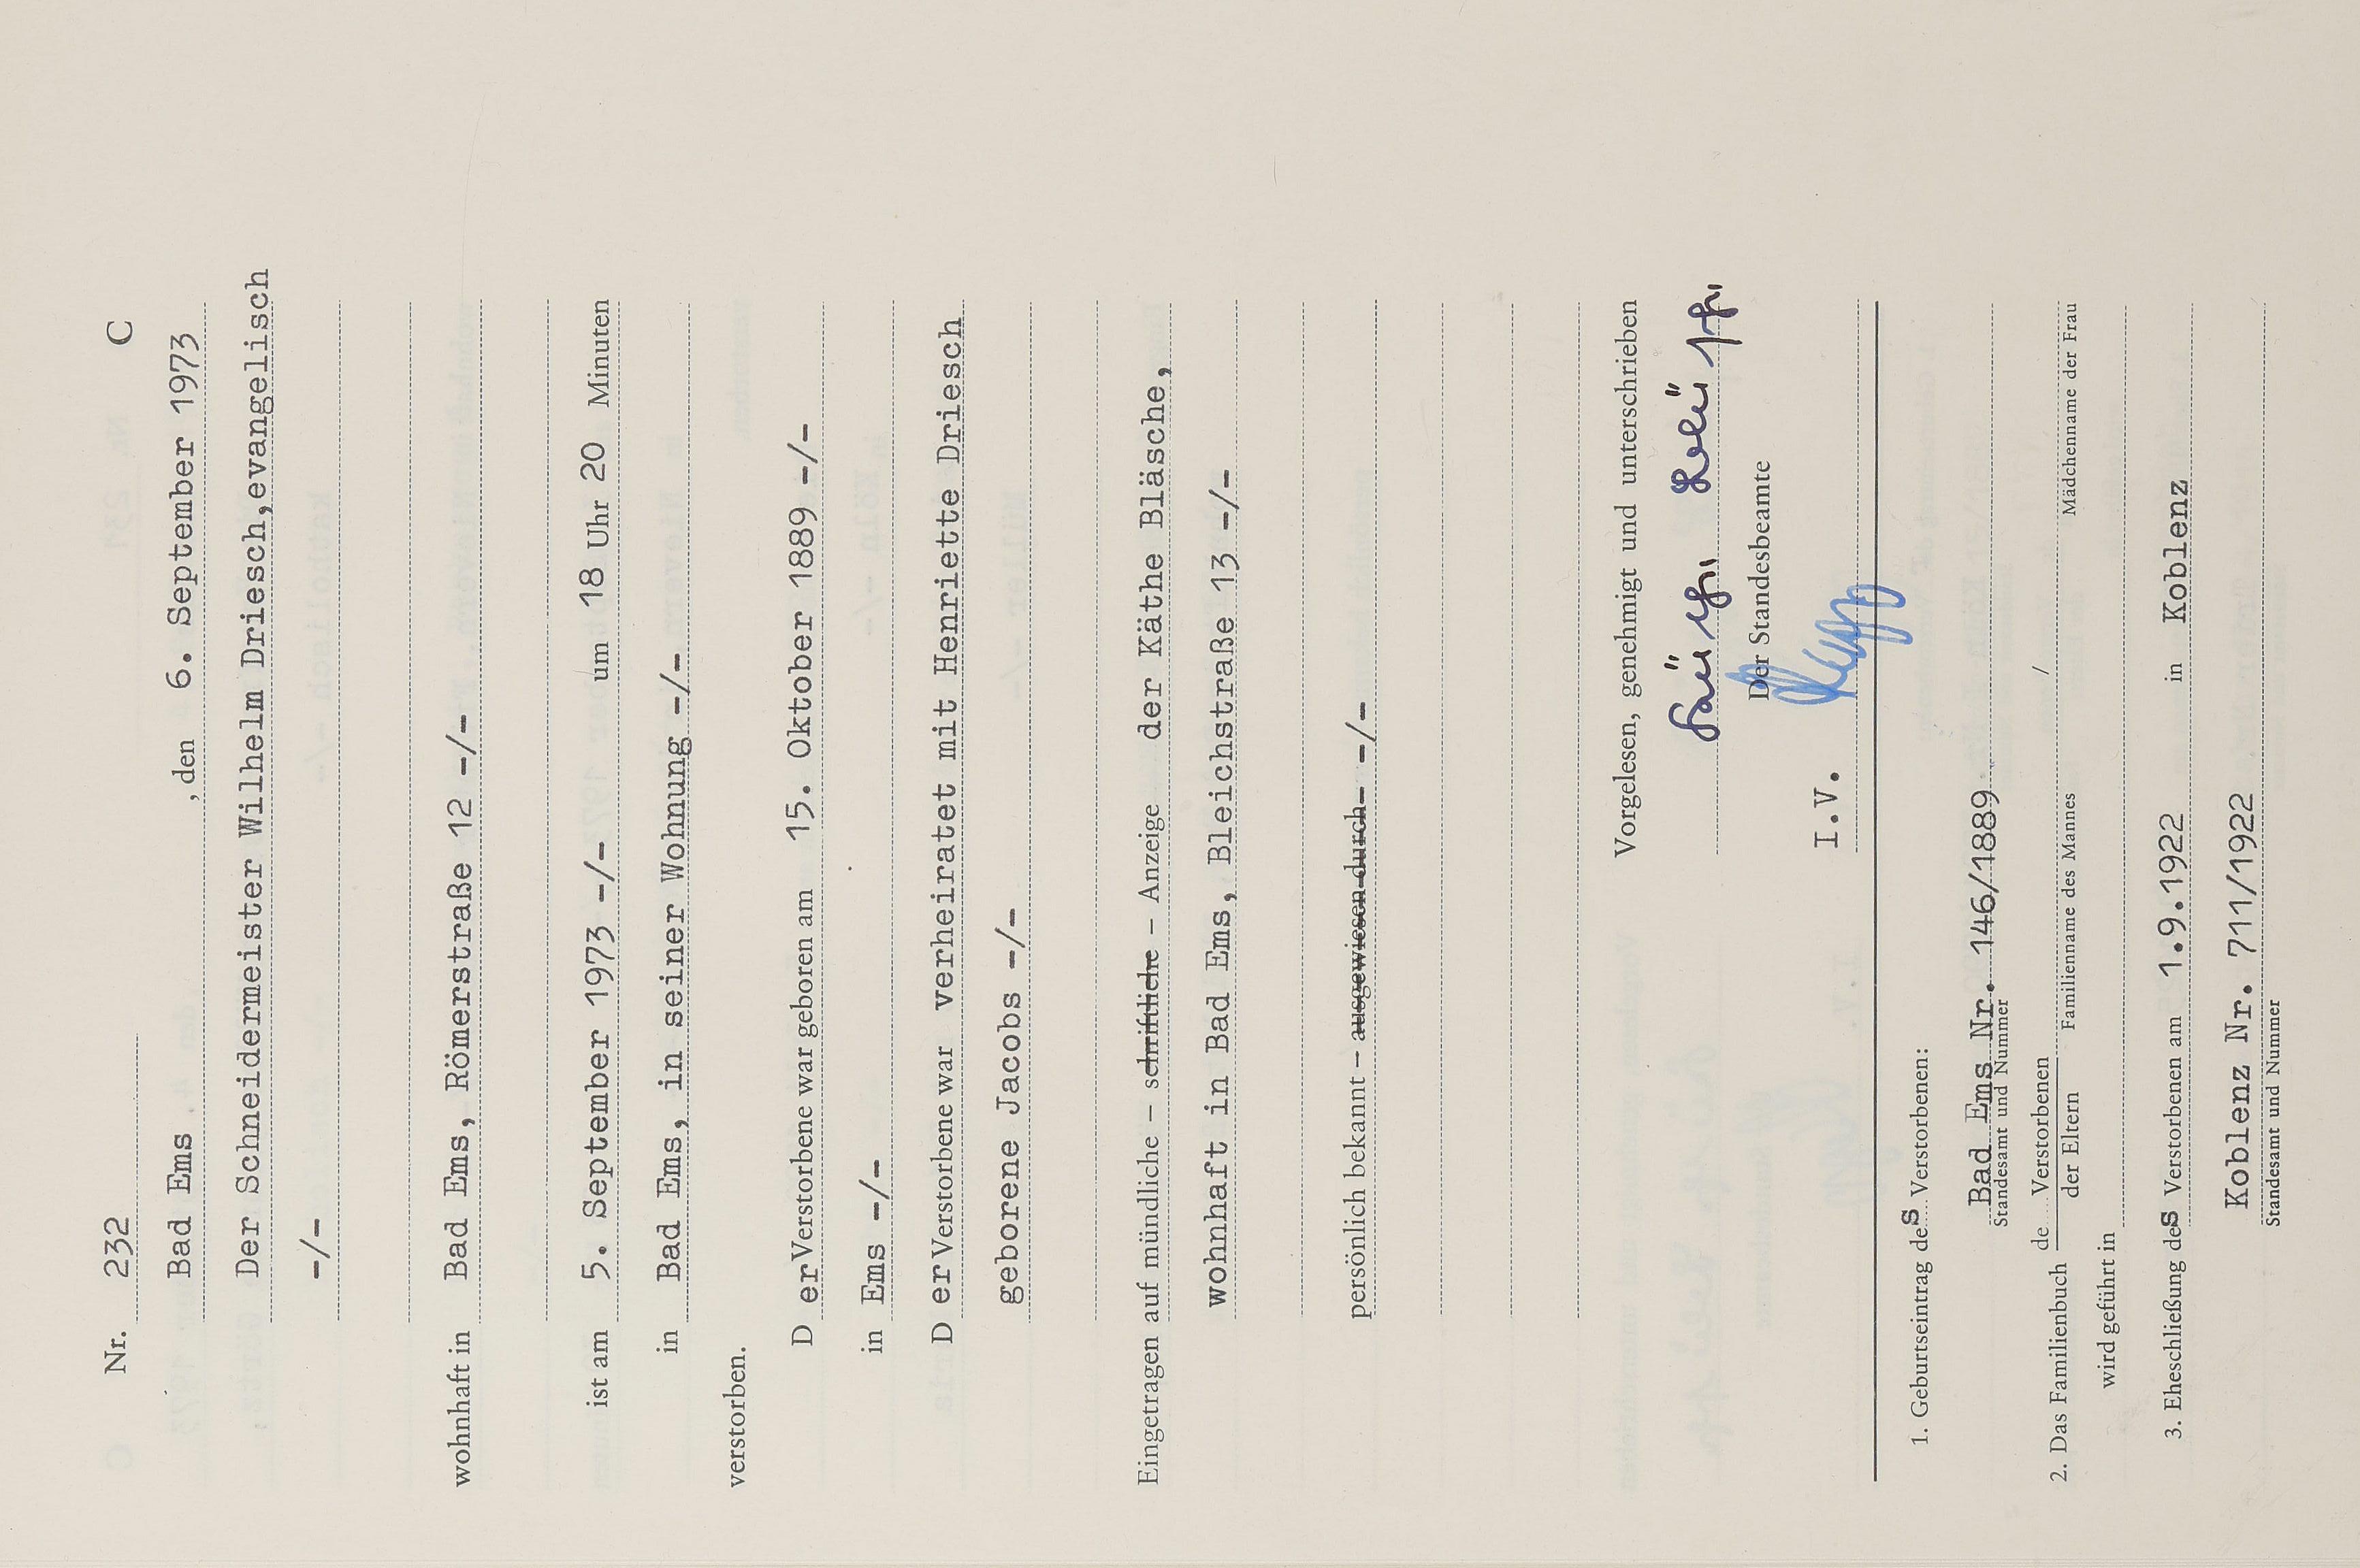 Nr. 232 C
Bad Ems , den 6. September 1973
Der Schneidermeister Wilhelm Driesch,evangelisch
-/-
wohnhaft in Bad Ems, Römerstraße 12 -/-
ist am 5. September 1973 -/- um 18 Uhr 20 Minuten
in Bad Ems, in seiner Wohnung -/-
verstorben.
D er Verstorbene war geboren am 15. Oktober 1889 -/-
in Ems -/-
D er Verstorbene war verheiratet mit Henriette Driesch
geborene Jacobs -/-
Eingetragen auf mündliche – schriftliche – Anzeige der Käthe Bläsche,
wohnhaft in Bad Ems, Bleichstraße 13 -/-
persönlich bekannt – ausgewiesen durch -/-
Vorgelesen, genehmigt und unterschrieben
Der Standesbeamte
I.V.
1. Geburtseintrag des Verstorbenen:
Bad Ems Nr. 146/1889
Standesamt und Nummer
2. Das Familienbuch de Verstorbenen /
der Eltern Familienname des Mannes Mädchenname der Frau
wird geführt in
3. Eheschließung des Verstorbenen am 1.9.1922 in Koblenz
Koblenz Nr. 711/1922
Standesamt und Nummer